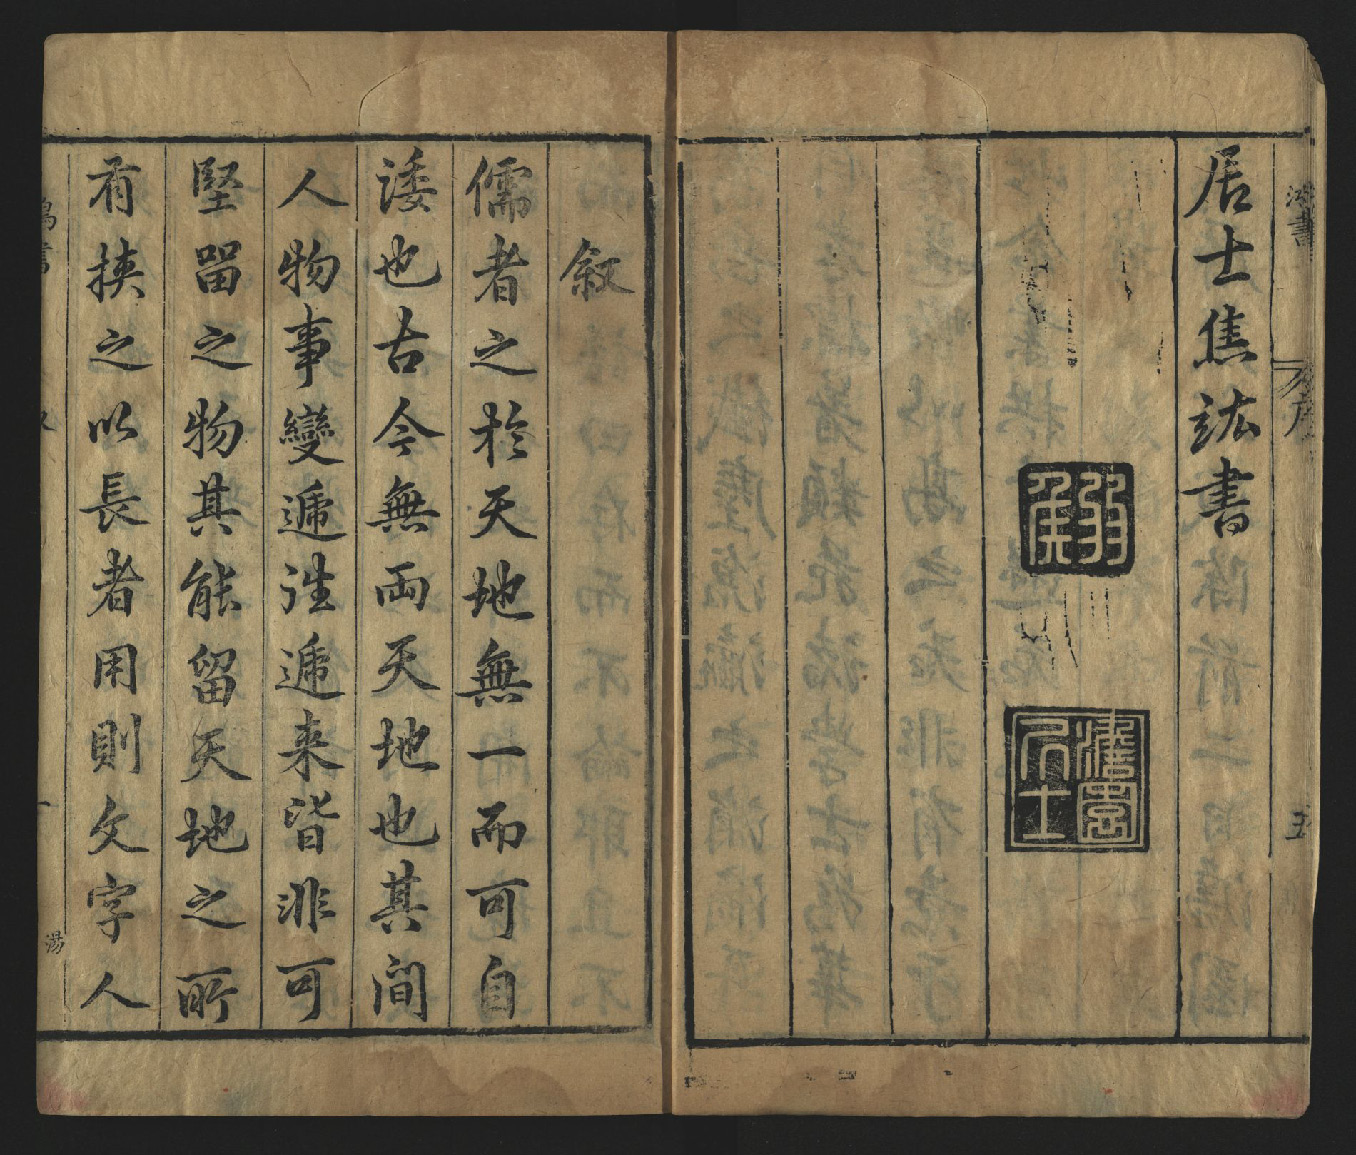 居士焦竑書
弱侯
澹園居士
五
叙
儒者之於天地無一而可自
諉也古今無兩天地也其間
人物事變遞徃遞来皆非可
堅畱之物其能留天地之所
有挾之以長者用則文字人